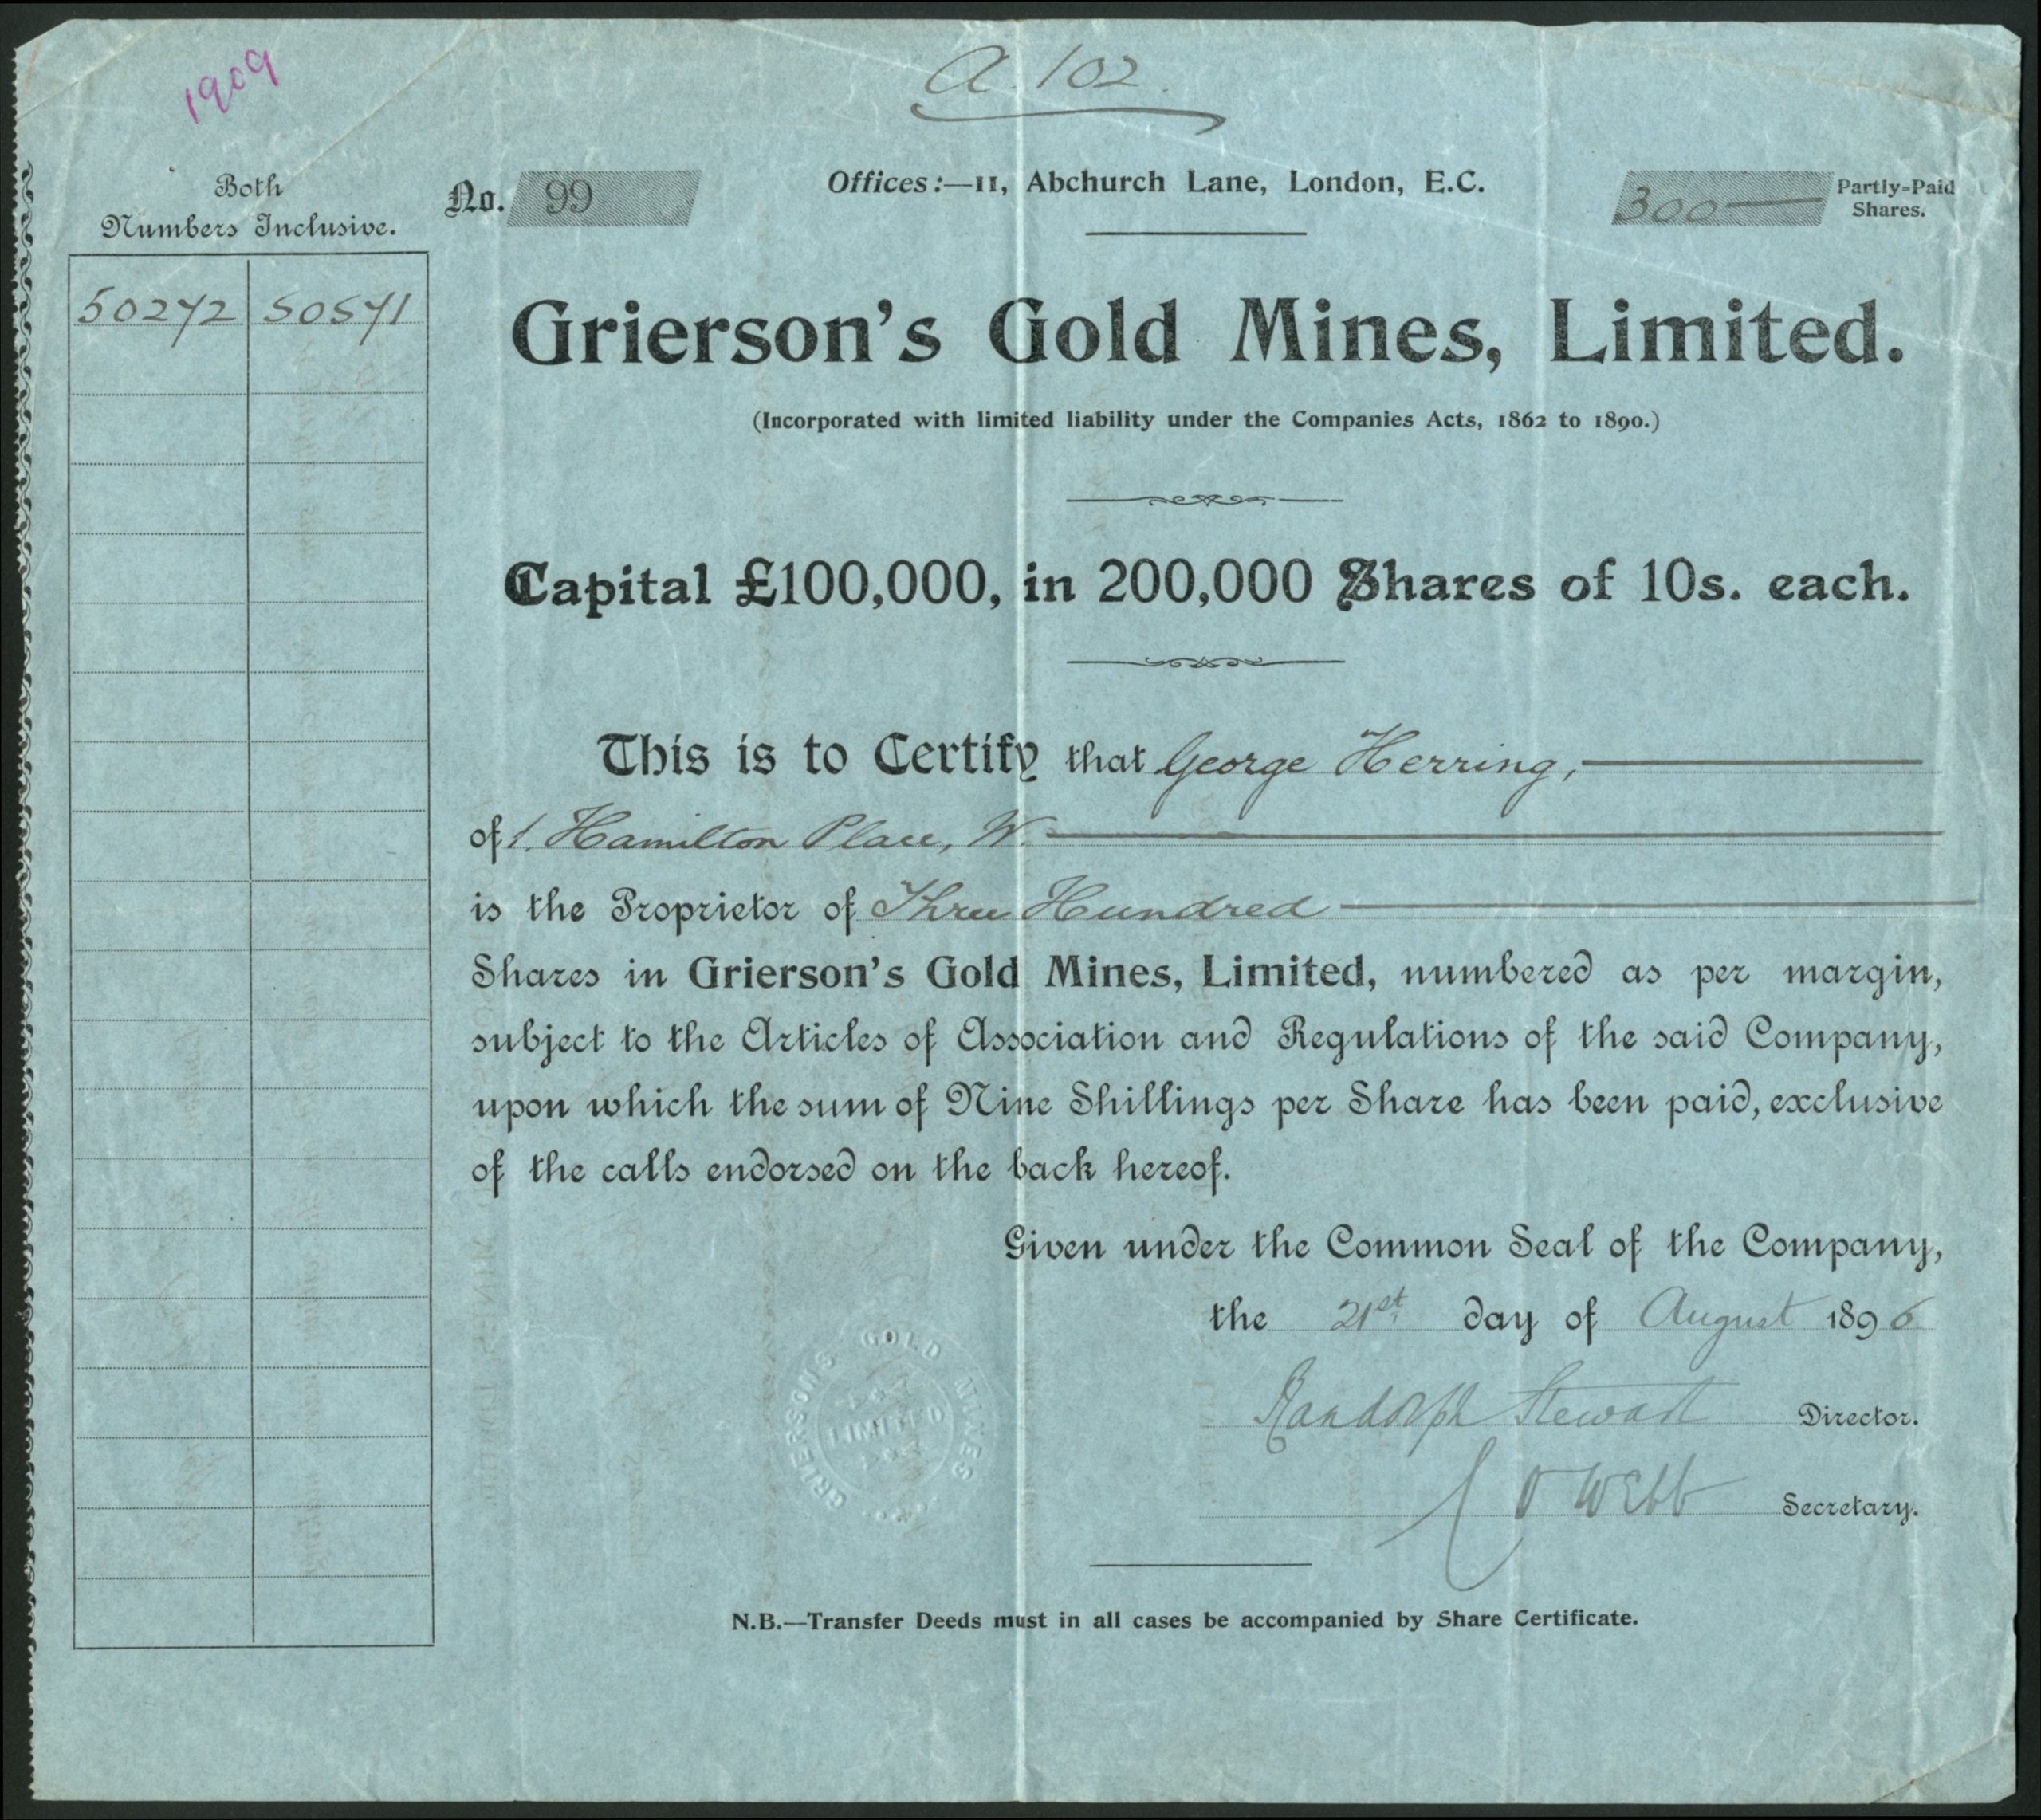 1909
a. 102.
Both
Numbers Inclusive.
50272 50571
No. 99
Offices:—11, Abchurch Lane, London, E.C.
300 Partly-Paid
Shares.
Grierson's Gold Mines, Limited.
(Incorporated with limited liability under the Companies Acts, 1862 to 1890.)
Capital £100,000, in 200,000 Shares of 10s. each.
This is to Certify that George Herring,
of 1. Hamilton Place, W.
is the Proprietor of Three Hundred
Shares in Grierson's Gold Mines, Limited, numbered as per margin,
subject to the Articles of Association and Regulations of the said Company,
upon which the sum of Nine Shillings per Share has been paid, exclusive
of the calls endorsed on the back hereof.
Given under the Common Seal of the Company,
the 21st day of August 1896
Randolph Stewart Director.
Webb Secretary.
GRIERSONS GOLD MINES
LIMITED
N.B.—Transfer Deeds must in all cases be accompanied by Share Certificate.